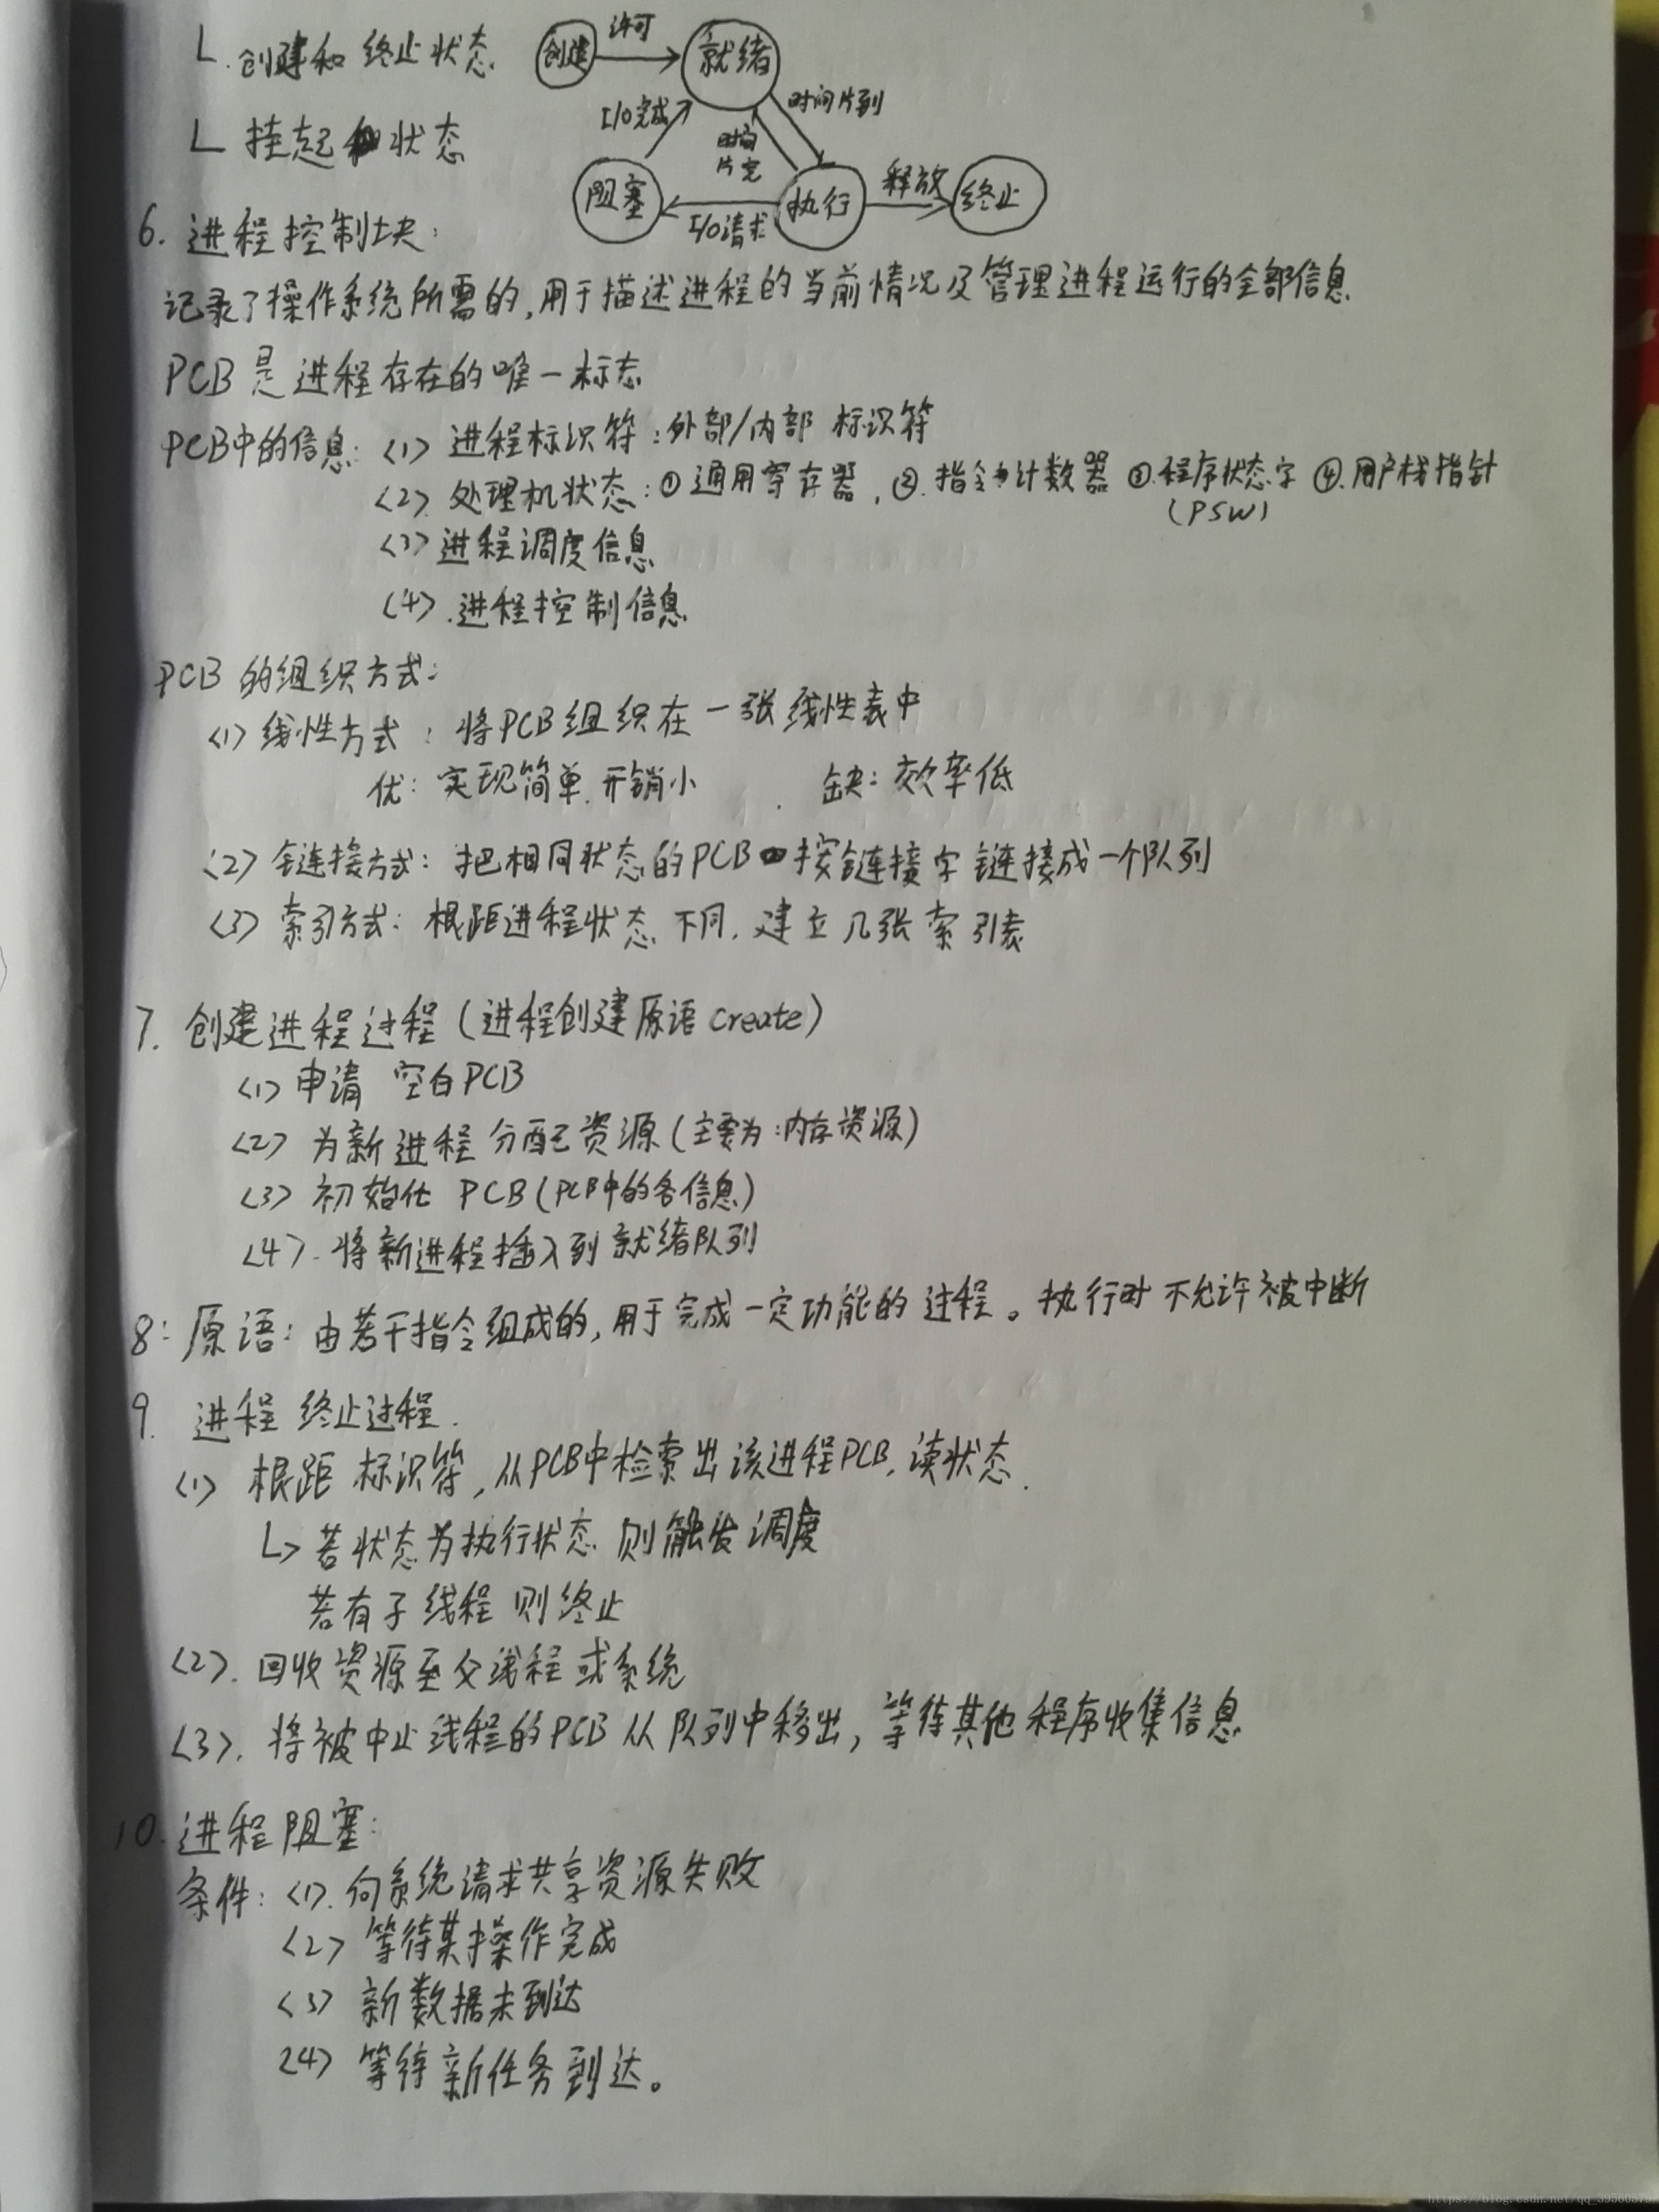 L.创建和终止状态
创建 许可 就绪
I/O完成 时间片完 时间片到
阻塞 I/O请求 执行 释放 终止
L 挂起状态
6. 进程控制块:
记录了操作系统所需的,用于描述进程的当前情况及管理进程运行的全部信息
PCB是进程存在的唯一标志
PCB中的信息: <1> 进程标识符:外部/内部 标识符
<2> 处理机状态:①通用寄存器,②.指令计数器 ③.程序状态字 ④.用户栈指针
(PSW)
<3>进程调度信息
<4>.进程控制信息
PCB 的组织方式:
<1>线性方式: 将PCB组织在一张线性表中
优: 实现简单.开销小 缺: 效率低
<2> 链接方式: 把相同状态的PCB按链接字链接成一个队列
<3> 索引方式: 根距进程状态不同.建立几张索引表
7. 创建进程过程(进程创建原语create)
<1>申请 空白PCB
<2> 为新进程分配资源(主要为:内存资源)
<3> 初始化 PCB(PCB中的各信息)
<4>.将新进程插入到就绪队列
8: 原语: 由若干指令组成的,用于完成一定功能的过程。执行时不允许被中断
9. 进程终止过程.
<1> 根距 标识符,从PCB中检索出该进程PCB,读状态.
L> 若状态为执行状态 则触发调度
若有子线程 则终止
<2>. 回收资源至父线程或系统
<3>. 将被中止线程的PCB从队列中移出,等待其他程序收集信息
10. 进程阻塞:
条件: <1>.向系统请求共享资源失败
<2> 等待某操作完成
<3> 新数据未到达
<4> 等待新任务到达。